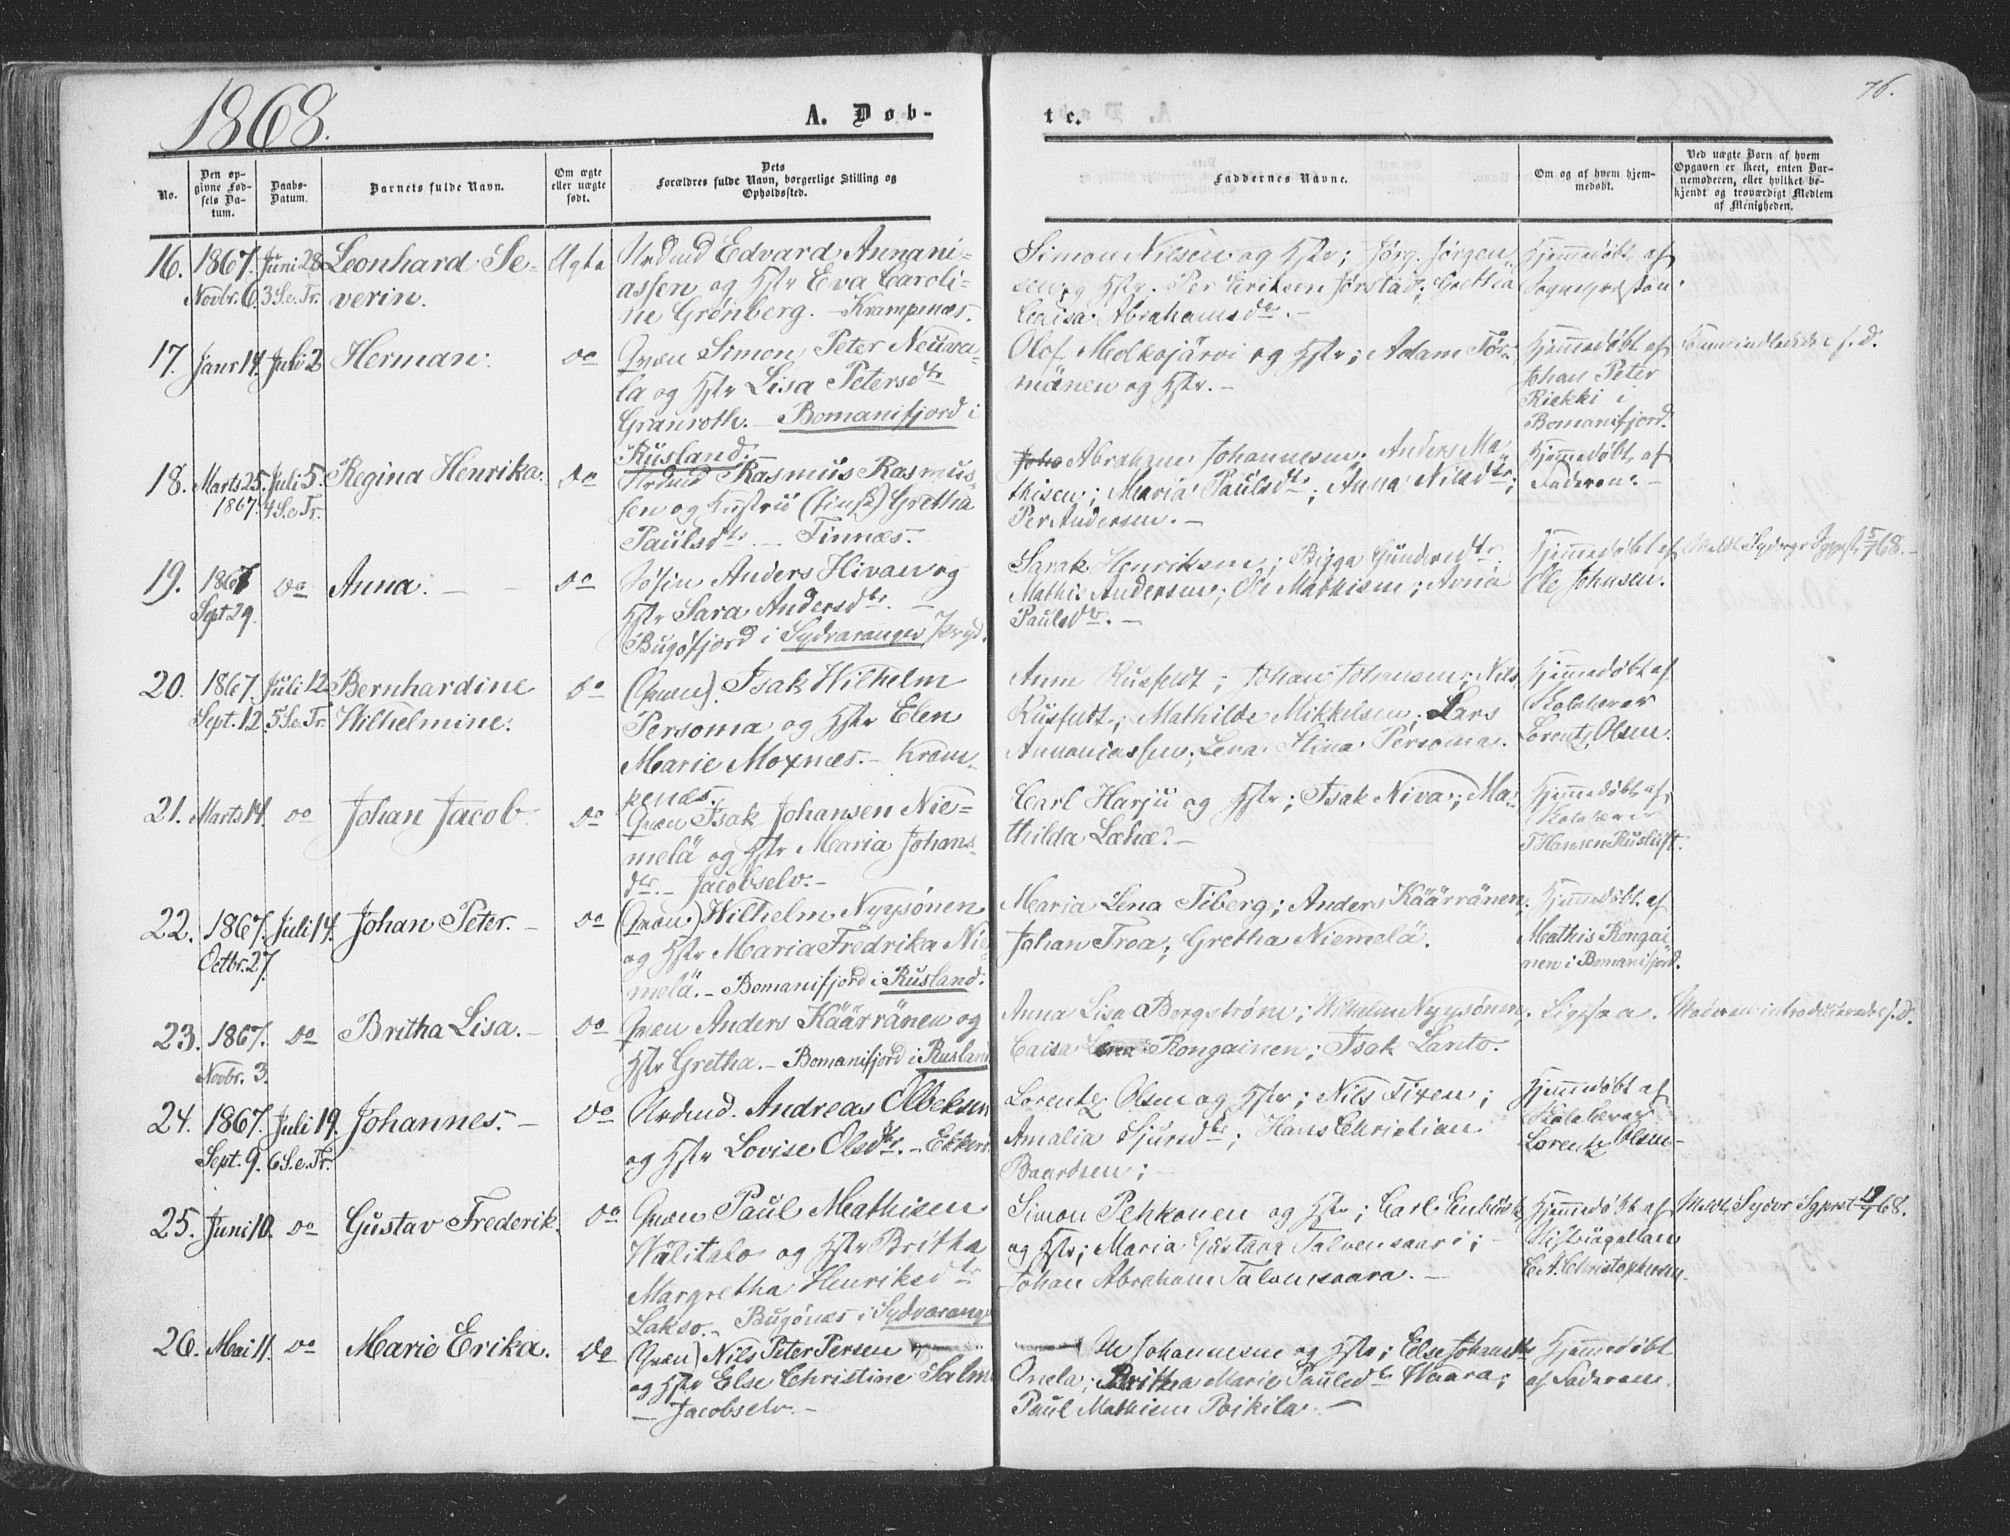 1868.
A. Døb-
te.
76.
No.
Den op-
givne Fød-
sels Da-
tum.
Daabs-
Datum.
Barnets fulde Navn.
Om ægte
eller uægte
født.
Dets
Forældres fulde Navn, borgerlige Stilling og
Opholdssted.
Faddernes Navne.
Om og af hvem hjem-
medøbt.
Ved uægte Børn af hvem
Opgaven er skeet, enten Bar-
nemoderen, eller hvilket be-
kjendt og troværdigt Medlem
af Menigheden.
16. 1867. Juni 28 Leonhard Se- Ægte Nrdmd Edvard Annani-
Novbr. 6. 3 S. e. Tr. verin. assen og Hstr Eva Caroli-
ne Grønberg. - Krampenæs.
Simon Nilsen og Hstr; Jørg. Jørgen-
sen og Hstr. Per Eriksen Jørstad; Gretha
Caisa Abrahamsdr. -
Hjemmedøbt af
Sognepræsten.
17. Janr 14. Juli 2 Herman. do Qvæn Simon Peter Neuva-
la og Hstr Lisa Petersdtr
Granroth. - Bomanifjord i
Rusland. -
Olof Molkojärvi og Hstr; Adam Tör-
mänen og Hstr. -
Hjemmedøbt af
Johan Peter
Riekki i
Bomanifjord.
18. Marts 25. Juli 5. Regina Henrika. do Nrdmd Rasmus Rasmus-
1867. 4 S. e. Tr. sen og Hustru Gretha
Paulsdtr. - Finnes. -
Abraham Johannesen; Anders Ma-
thisen; Maria Paulsdtr; Anna Nilsdtr;
Per Andersen. -
Hjemmedøbt af
Faderen. -
19. 1867 do Anna. - - do Anders Hivan og
Sept 29. Hstr Sara Andersdtr. -
Bugøfjord i Sydvaranger
Sarak Henriksen; Bigga Gundersdtr;
Mathis Andersen; Ole Mathisen; Anna
Paulsdtr. -
Hjemmedøbt af
Ole Johnsen.
20. 1867. Juli 12 Bernhardine do (Qvæn). Isak Wilhelm
Sept. 12 5 S. e. Tr. Wilhelmine. Persoma og Hstr Elen
Marie Moxnæs. - Kram-
penæs.
Anne Rusfeldt; Johan Johansen; Nils
Rusfeldt; Mathilde Mikkelsen; Lars
Annaniassen; Lena Stina Persoma.
Hjemmedøbt af
Skolelærer
Lorentz Olsen.
21. Marts 14. do Johan Jacob. do Qvæn Isak Johansen Nie-
melä og Hstr Maria Johans-
dtr. - Jacobselv. -
Carl Harju og Hstr; Isak Niva; Ma-
thilda Læhæ. -
Hjemmedøbt af
Skolelærer
22. 1867. Juli 14. Johan Peter. - do (Qvæn) Wilhelm Nyysönen
Octbr. 27. og Hstr Maria Fredrika Nie-
melä. - Bomanifjord i Rusland.
Maria Lena Fiberg; Anders Käärränen;
Johan Troa; Gretha Niemelä.
Hjemmedøbt af
Mathis Rongai-
nen i Bomanifjord.
23. 1867. do Britha Lisa. - do Qvæn Anders Käärränen og
Novbr. 3. Hstr Gretha. - Bomanifjord i Rusland
Anna Lisa Bergstrøm; Wilhelm Nyysönen;
Caisa Rongainen; Isak Lanto.
Ligesaa.
Moderen introduceredes s. D.
24. 1867. Juli 19. Johannes. - do Nrdmd. Andreas Olbeksen
Sept. 9. 6 S. e. Tr. og Hstr Lovise Olsdtr. - Ekkerø
Lorentz Olsen og Hstr; Nils Fixen;
Amalia Sjursdtr; Hans Christian
Baardsen; -
Hjemmedøbt af
Skolelærer
Lorentz Olsen
25. Juni 10. do Gustav Frederik. do Qvæn Paul Mathisen
Wälitalo og Hstr Britha
Margretha Henriksdtr
Lakso. - Bugønæs i Sydvarang
Simon Pehkonen og Hstr; Carl Enbusk
og Hstr; Maria Gustava Talvensaari; -
Johan Abraham Talvensaara. -
Hjemmedøbt af
C. A. Christophersen.
26. Mai 11. do Marie Erika. do (Qvæn) Nils Peter Persen
og Hstr Else Christine Salm
- Jacobselv. -
Ole Johannesen og Hstr; Else Johansdtr
Onela; Britha Marie Paulsdtr Waara;
Paul Mathisen Poikila. -
Hjemmedøbt
af Faderen.